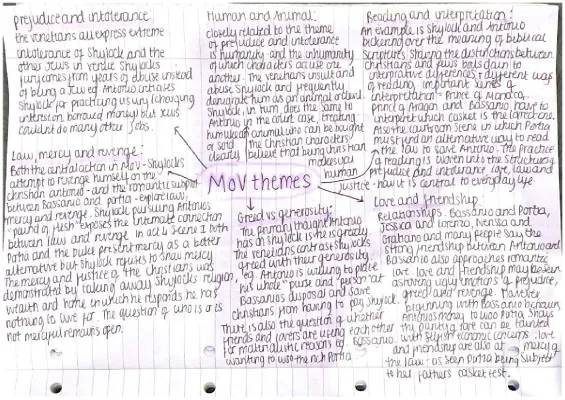 prejudice and intolerance:
the venetians all express extreme
intolerance of Shylock and the
other Jews in venice. Shylocks
fury comes from years of abuse instead
of being a Jew eg Antonio criticises
Shylock for practicing usury (charging
interest on borrowed money) but Jews
couldnt do many other jobs.
Human and Animal:
closely related to the theme
of prejudice and intolerance
is humanity and the inhumanity
of which characters accuse one
another. The venetians insult and
abuse Shylock and frequently
denigrate him as an animal or devil.
Shylock, in turn does the same to
Antonio in the court case, treating
humans as animal who can be bought
or sold
clearly
the Christian characters
believe that being christian
makes you
human
Reading and interpretation:
An example is Shylock and Antonio
bickering over the meaning of biblical
scriptures. Showing the distinctions between
Christians and Jews boils down to
interpretive differences - different ways
of reading. Important scenes of
interpretation - Prince of Morocco,
prince of Aragon and Bassanio, have to
interpret which casket is the correct one.
Also the courtroom scene in which Portia
must find an alternative way to read
the law to save Antonio. The practice
of reading is woven into the structure of
prejudice and intolerance, love, law and
justice - how it is central to everyday life
Law, mercy and revenge:
Both the central action in MoV - Shylocks
attempt to revenge himself on the
christian Antonio - and the romantic subplot
between Bassanio and portia - explore law,
mercy and revenge. Shylock pursuing Antonios
"pound of flesh" exposes the intimate connection
between law and revenge. in act 4 Scene 1 both
Portia and the Duke present mercy as a better
alternative but shylock refuses to show mercy.
The mercy and justice of the christians was
demonstrated by taking away Shylocks religion,
wealth and home in which he responds he has
nothing to live for. The question of who is or is
not merciful remains open.
MoV themes
Greed vs generosity:
The primary thought Antonio
has on shylock is he is greedy.
The venetians contrast Shylocks
greed with their generosity
eg, Antonio is willing to place
his whole "purse and person" at
Bassanios disposal and save
christians from having to pay Shylock
There is also the question of whether
friends and lovers are using each other
for materialistic reasons eg Bassanio
wanting to woo the rich Portia
Love and friendship:
Relationships: Bassanio and Portia,
Jessica and Lorenzo, Nerissa and
Gratiano and many people say the
strong friendship between Antonio and
Bassanio also approaches romantic
love. love and friendship may be seen
as driving ugly emotions of prejudice,
greed and revenge. However
beginning with Bassanio borrowing
Antonios money to woo Portia, Shows
the purity of love can be tainted
with selfish economic concerns. love
and friendship are also at mercy of
the law - as seen Portia being subject
to her fathers casket test.